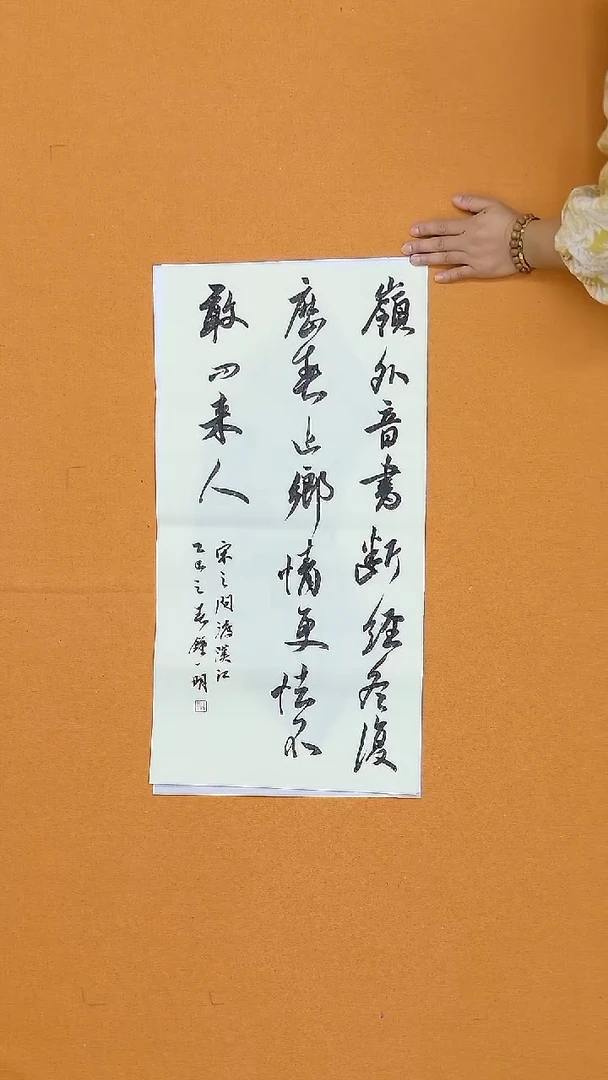 嶺外音書斷經冬復
歷春近鄉情更怯不
敢問来人
宋之問渡漢江
乙巳之春鍾一明